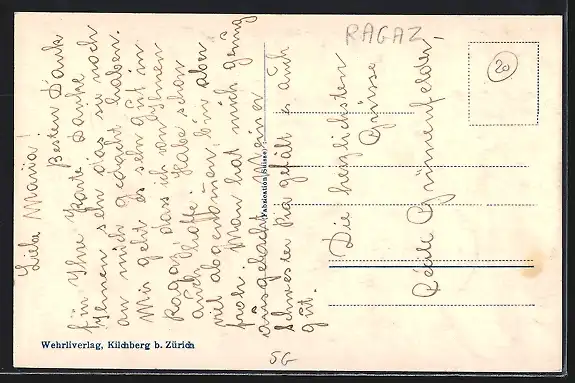 Liebe Maria!
Besten Dank
für Ihre Karte. Danke
Ihnen sehr das sie noch
an mich gedacht haben.
Mir geht es sehr gut in
Ragaz dass ich von Ihnen
auch hoffe. Habe schon
viel abgenommen bin aber
froh. Man hat mich genug
ausgelacht. Meiner
Schwester Pia gefällt es auch
gut.
Die herzlichsten
Grüsse
Cécile Grünenfelder.
RAGAZ
20
(Fabrication Suisse)
Wehrliverlag, Kilchberg b. Zürich
SG